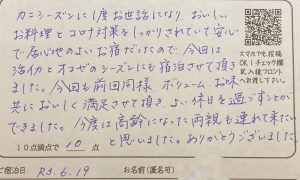 カニシーズンに1度お世話になり、おいしい
お料理とコロナ対策としっかりされていて安心
で居心地のよいお宿だったので今回は
活イカとオコゼのシーズンにも宿泊させて頂き
ました。今回も前回同様、ボリューム、お味
共においしく満足させて頂き、よい休日を過ごすことが
できました。今度は高齢になった両親も連れて来たい
と思いました。ありがとうございました。
10点満点で 10 点
ご宿泊日 R3.6.19 お名前(匿名可)
スマホでも投稿
OK!チェック欄
記入後フロント